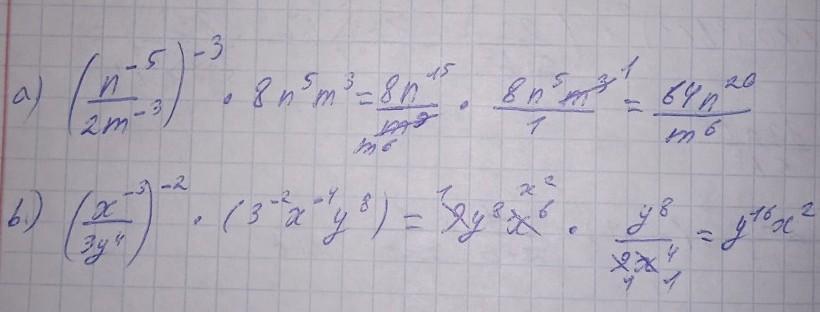 a) (n^-5 / 2m^-3)^-3 · 8n^5m^3 = 8n^15 / m^9 m^6 · 8n^5m^3 1 / 1 = 64n^20 / m^6
b.) (x^-3 / 3y^4)^-2 · (3^-2x^-4y^8) = 1 9y^8x^6 x^2 · y^8 / 9x^4 1 1 = y^16x^2